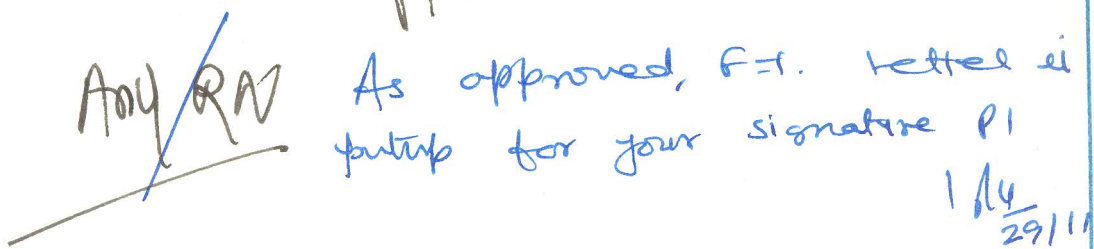 Any RN
As approved, F=1. letter is
putup for your signature Pl
29/11